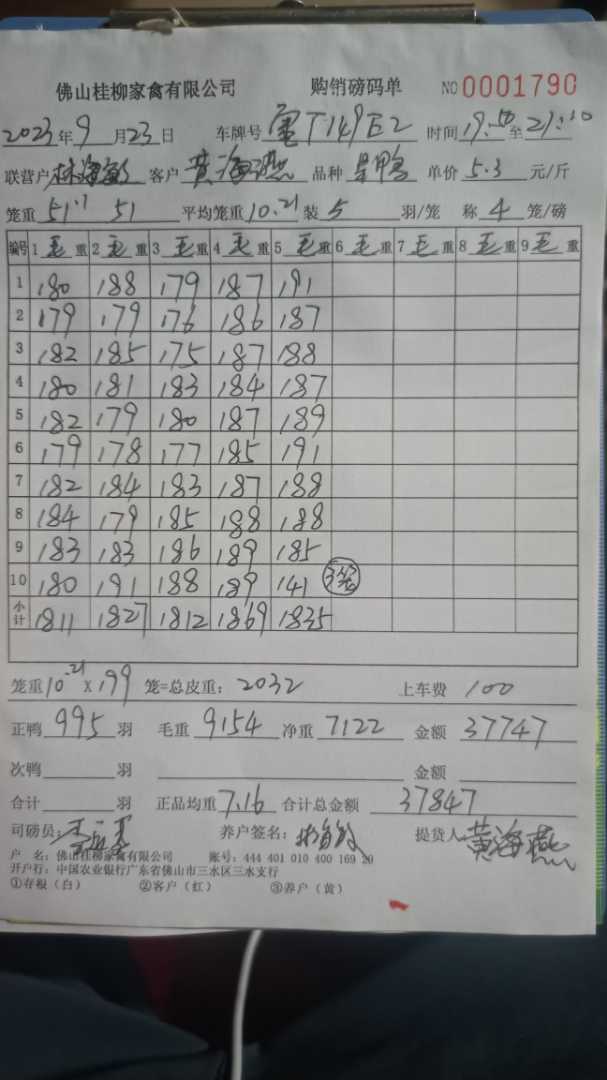 佛山桂柳家禽有限公司 购销磅码单 NO 0001790
2023年9月23日 车牌号 T149E2 时间19:50至21:10
联营户 林海敏 客户 黄海燕 品种 鸭 单价 5.3 元/斤
笼重 51.1 51 平均笼重10.21装 5 羽/笼 称 4 笼/磅
编号 1 毛 重 2 毛 重 3 毛 重 4 毛 重 5 毛 重 6 毛 重 7 毛 重 8 毛 重 9 毛 重
1 180 188 179 187 191
2 179 179 176 186 187
3 182 185 175 187 188
4 180 181 183 184 187
5 182 179 180 187 189
6 179 178 177 185 191
7 182 184 183 187 188
8 184 179 185 188 188
9 183 183 186 189 185
10 180 191 188 189 141 3笼
小计 1811 1827 1812 1869 1835
笼重10.21 X 199 笼=总皮重: 2032 上车费 100
正鸭 995 羽 毛重 9154 净重 7122 金额 37747
次鸭 羽 金额
合计 羽 正品均重 7.16 合计总金额 37847
司磅员: 养户签名: 提货人 黄海燕
户 名: 佛山桂柳家禽有限公司 账号: 444 401 010 400 169 20
开户行: 中国农业银行广东省佛山市三水区三水支行
①存根(白) ②客户(红) ③养户(黄)